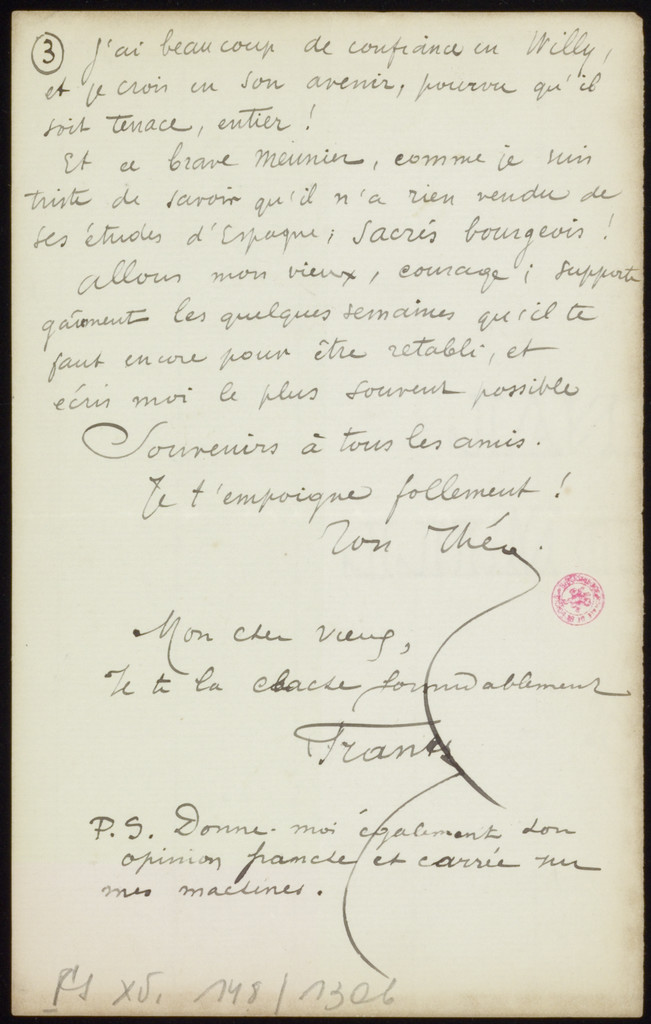 3 J'ai beaucoup de confiance en Willy,
et je crois en son avenir, pourvu qu'il
soit tenace, entier !
Et ce brave Meunier, comme je suis
triste de savoir qu'il n'a rien vendu de
ses études d'Espagne ; sacrés bourgeois !
Allons mon vieux, courage ; supporte
gaiement les quelques semaines qu'il te
faut encore pour être retabli, et
écris moi le plus souvent possible
Souvenirs à tous les amis.
Je t'empoigne follement !
Ton Théo.
Mon cher vieux,
Je te la clache formidablement
Frantz
P.S. Donne-moi également ton
opinion franche et carrée sur
mes machines.
FS XV. 148 / 130b